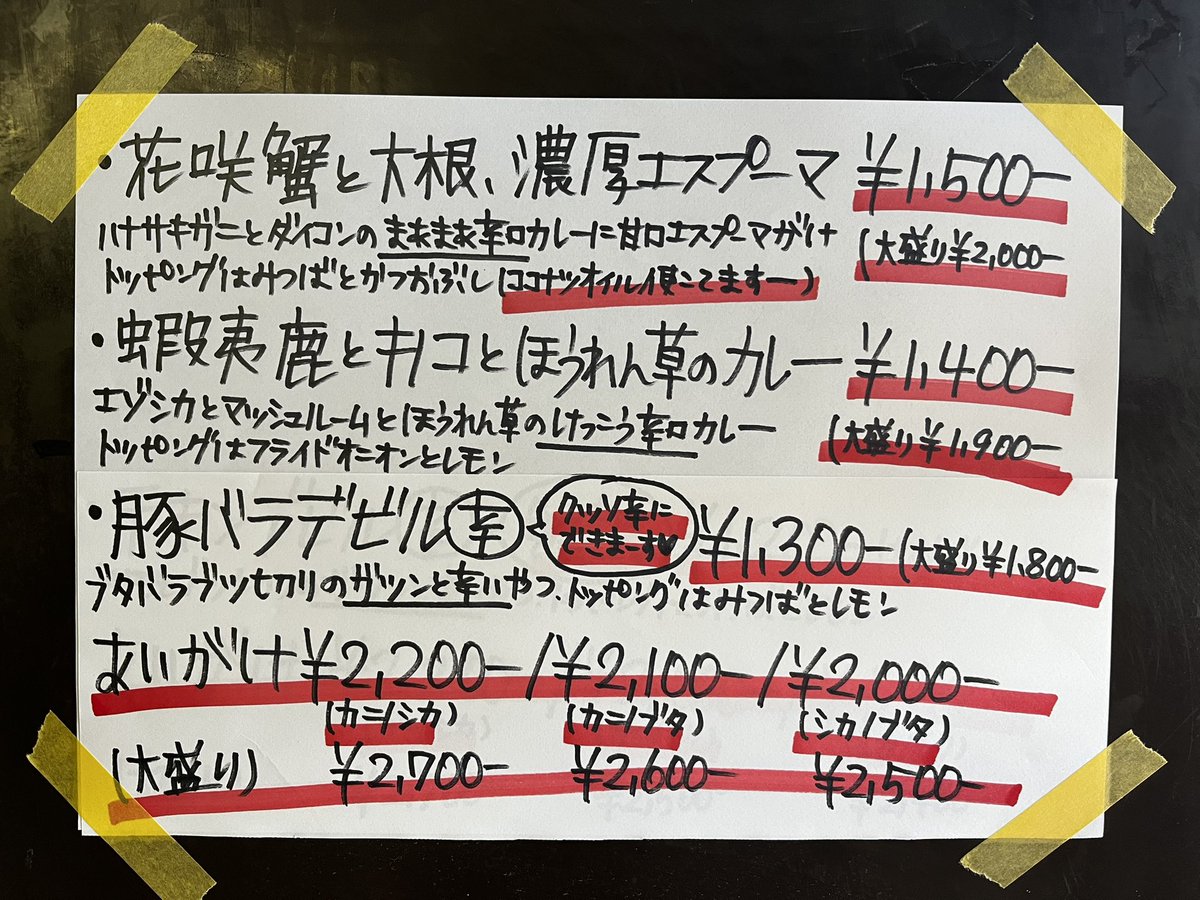 ・花咲蟹と大根、濃厚エスプーマ ¥1,500-
ハナサキガニとダイコンのまあまあ辛口カレーに甘口エスプーマがけ (大盛り¥2,000-
トッピングはみつばとかつおぶし(ココナツオイル使ってますー)
・蝦夷鹿とキノコとほうれん草のカレー ¥1,400-
エゾシカとマッシュルームとほうれん草のけっこう辛口カレー (大盛り¥1,900-
トッピングはフライドオニオンとレモン
・豚バラデビル辛 クッソ辛に ¥1,300-(大盛り¥1,800-
できまーす♥
ブタバラブツ切りのガツンと辛いやつ、トッピングはみつばとレモン
あいがけ¥2,200-/¥2,100-/¥2,000-
(カニ/シカ) (カニ/ブタ) (シカ/ブタ)
(大盛り) ¥2,700- ¥2,600- ¥2,500-